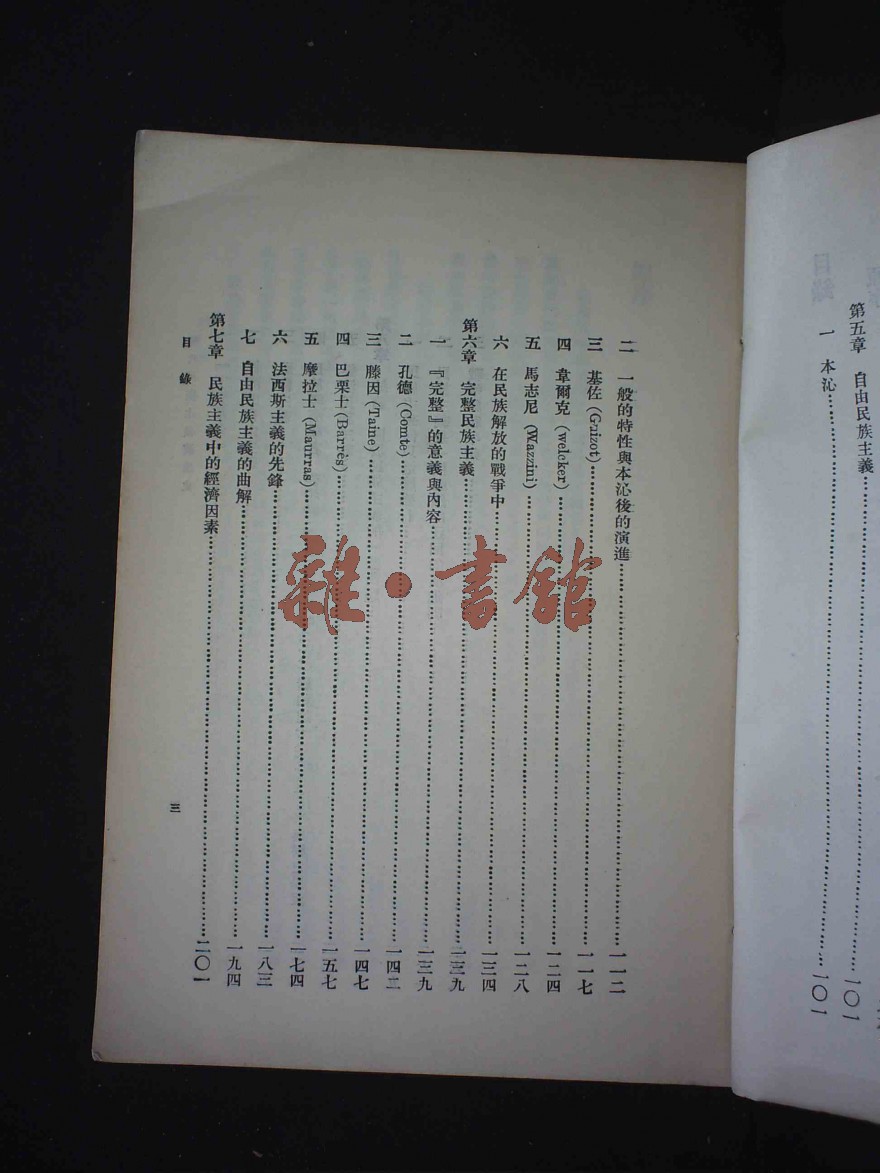 目錄
第五章　自由民族主義……一〇一
一　本沁……一〇一
二　一般的特性與本沁後的演進……一一二
三　基佐(Guizot)……一一七
四　韋爾克(welcker)……一二四
五　馬志尼(Wazzini)……一二八
六　在民族解放的戰爭中……一三四
第六章　完整民族主義……一三九
一　『完整』的意義與內容……一三九
二　孔德(Comte)……一四二
三　滕因(Taine)……一四七
四　巴栗士(Barrès)……一五七
五　摩拉士(Maurras)……一七四
六　法西斯主義的先鋒……一八三
七　自由民族主義的曲解……一九四
第七章　民族主義中的經濟因素……二〇一
目錄
三
雜·書館